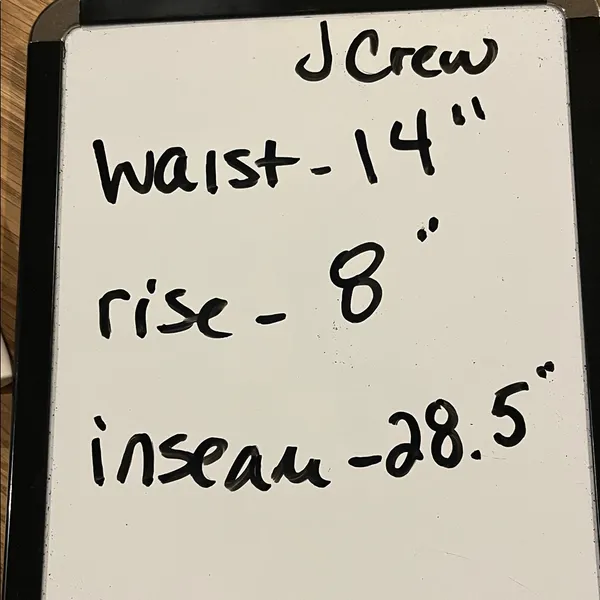 J Crew
waist - 14"
rise - 8"
inseam - 28.5"